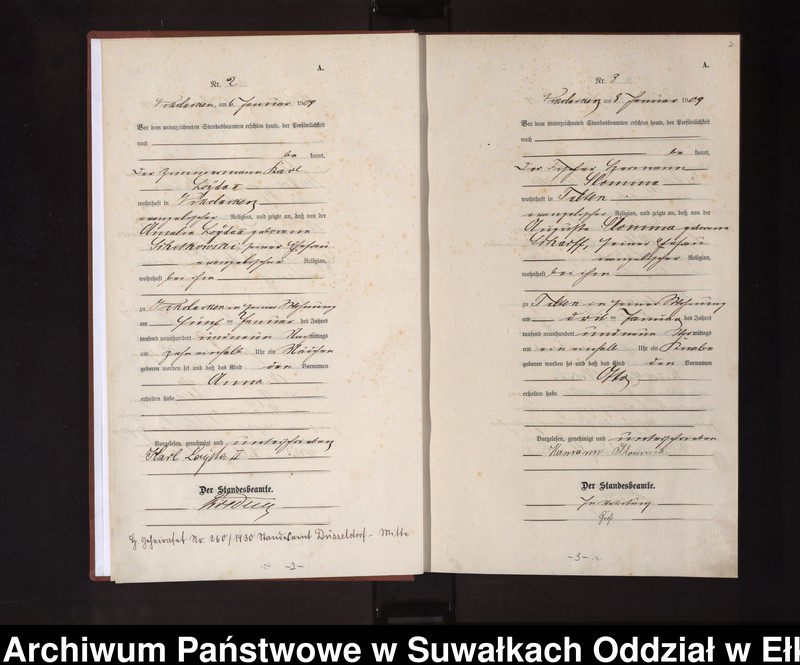 A.
Nr. 2
am 6 Januar 1909
Vor dem unterzeichneten Standesbeamten erschien heute, der Persönlichkeit
nach
be kannt,
Der Zimmermann Karl
wohnhaft in
evangelischer Religion, und zeigte an, daß von der
Amalie geborene
seiner Ehefrau
evangelischer Religion,
wohnhaft bei ihm
zu in seiner Wohnung
am fünf Januar des Jahres
tausend neunhundert und neun Nachmittags
um zehn einhalb Uhr ein Mädchen
geboren worden sei und daß das Kind den Vornamen
Anna
erhalten habe
Vorgelesen, genehmigt und unterschrieben
Karl II
Der Standesbeamte.
Geheiratet Nr. 260/1930 Standesamt Düsseldorf - Mitte
-2-
A.
Nr. 3
am 8 Januar 1909
Vor dem unterzeichneten Standesbeamten erschien heute, der Persönlichkeit
nach
be kannt,
Der Hermann
Slomma
wohnhaft in
evangelischer Religion, und zeigte an, daß von der
Auguste Slomma geborene
seiner Ehefrau
evangelischer Religion,
wohnhaft bei ihm
zu in seiner Wohnung
am drei Januar des Jahres
tausend neunhundert und neun Vormittags
um ein einhalb Uhr ein Knabe
geboren worden sei und daß das Kind den Vornamen
Otto
erhalten habe
Vorgelesen, genehmigt und unterschrieben
Der Standesbeamte.
In Vertretung
-3-
Archiwum Państwowe w Suwałkach Oddział w Ełk